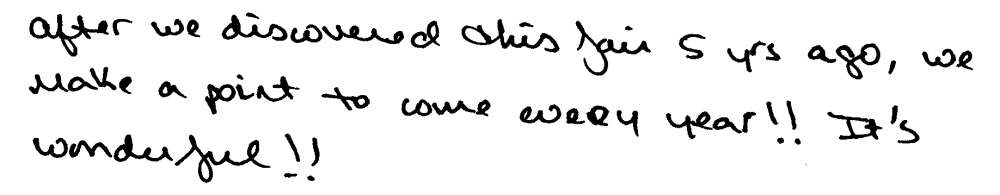 after we discovered this fair 5 yrs ago, we
make a point to come every year!! It's
wonderful!!